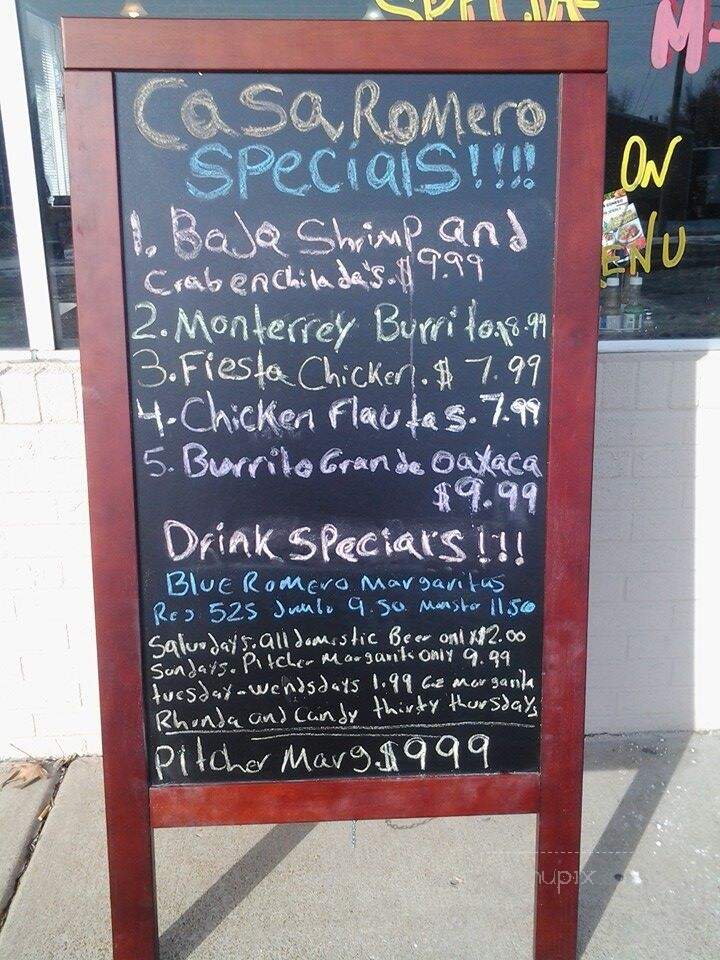 SPECIAL
M-
ON
ENU
Casa Romero
Specials!!!!
1. Baja Shrimp and
Crab enchilada's. $9.99
2. Monterrey Burrito. $8.99
3. Fiesta Chicken. $ 7.99
4. Chicken Flautas. 7.99
5. Burrito Grande Oaxaca
$9.99
Drink Specials!!!
Blue Romero Margaritas
Reg 525 Jumbo 9.50 Monster 11.50
Saturdays. all domestic Beer only $2.00
Sundays. Pitcher Margarita only 9.99
tuesday-wendsdays 1.99 6oz margarita
Rhonda and Candy thirty thursdays
Pitcher Marg. $999
nupix